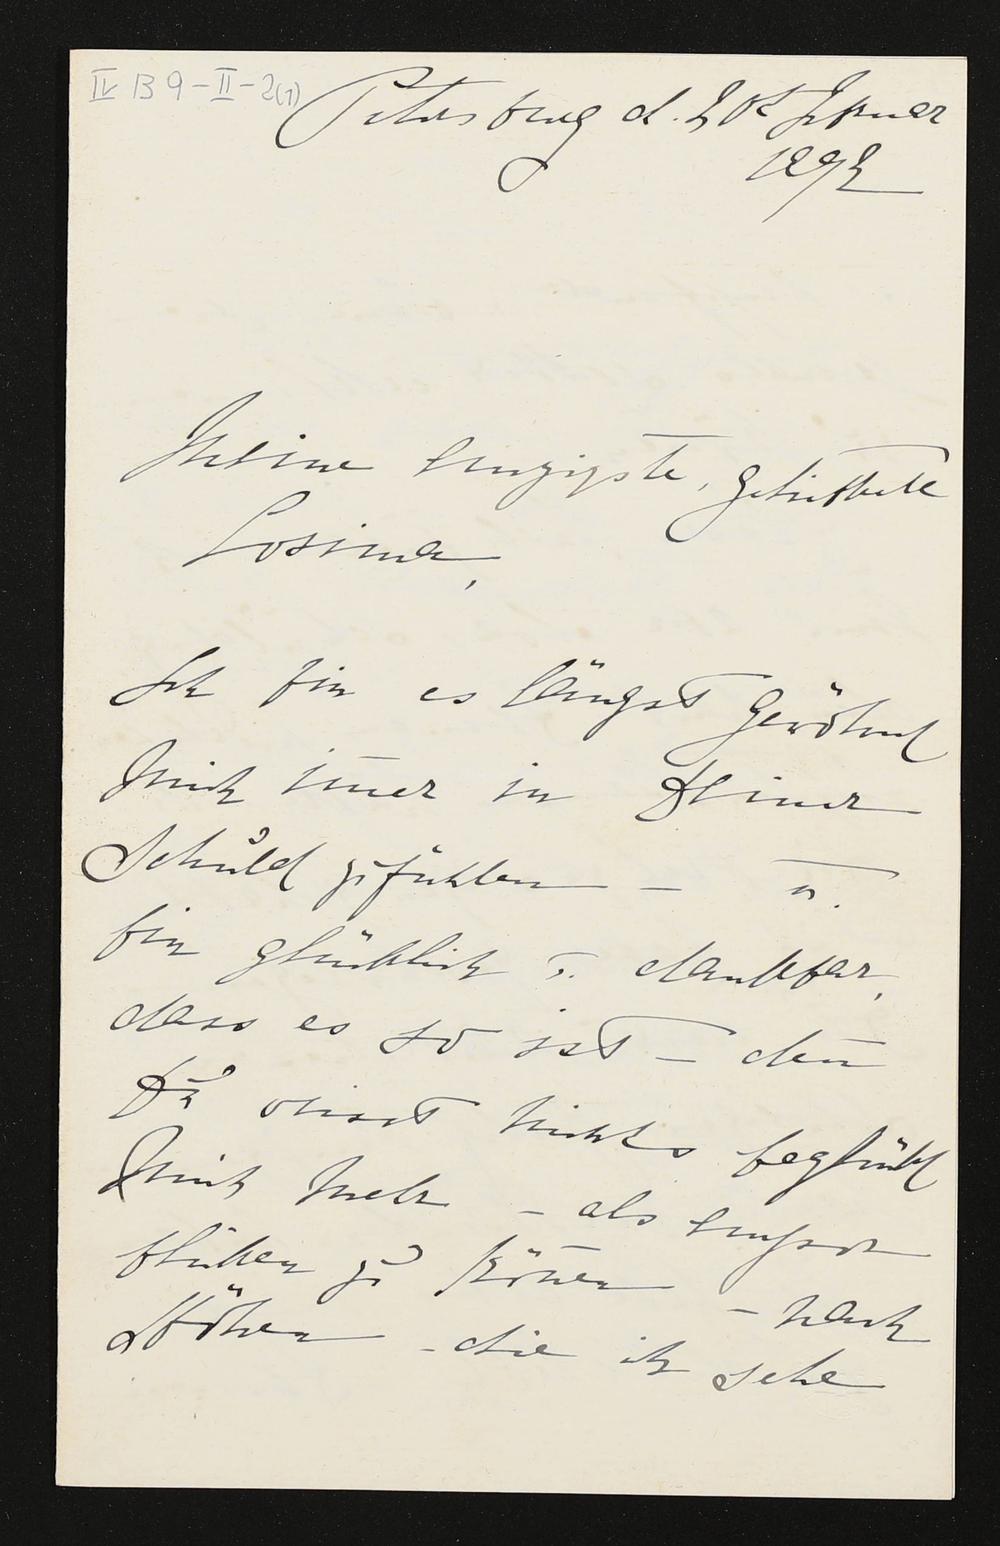 IV B 9-II-2(1)
Petersburg d. 20t Januar
1892
Meine einzigste, geliebteste
Cosima,
Ich bin es längst gewöhnt
mich im̄er in Deiner
Schuld zu fühlen – u.
bin glücklich u. dankbar,
dass es so ist – den̄
Du weisst nichts beglückt
mich mehr – als empor
blicken zu kön̄en – nach
Höhen – die ich sehe